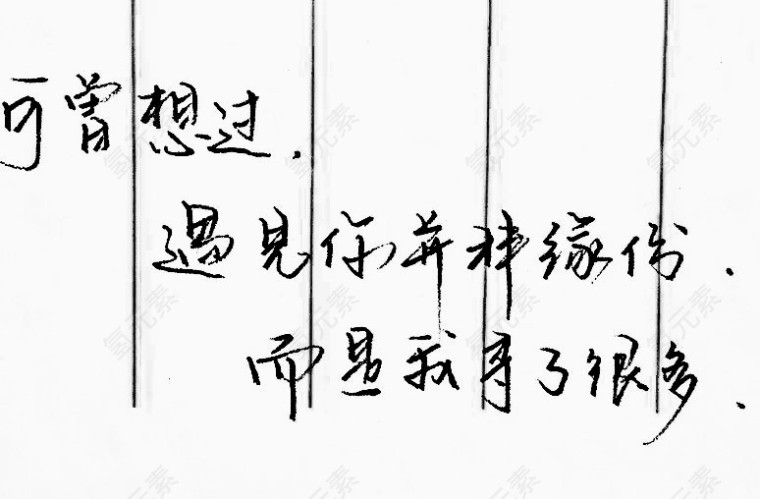 可曾想过.
遇见你并非缘份.
而是我寻了很多.
氢元素